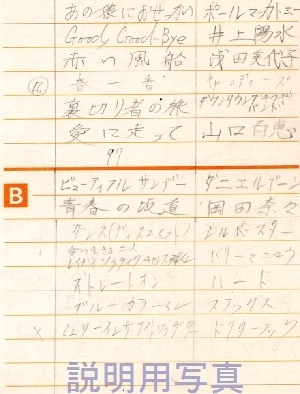 あの娘におせっかい ポールマッカトニー
Good, Good-Bye 井上陽水
赤い風船 浅田美代子
⑯ 春一番 キャンディーズ
裏切り者の旅 ダウンタウンブギウギバンド
愛に走って 山口百恵
97
B
ビューティフルサンデー ダニエルブーン
青春の坂道 岡田奈々
シルバースター
二人
バリーマニロウ
ストレートオン ハート
ブルーカラーマン スティックス
× ドクターフック
説明用写真